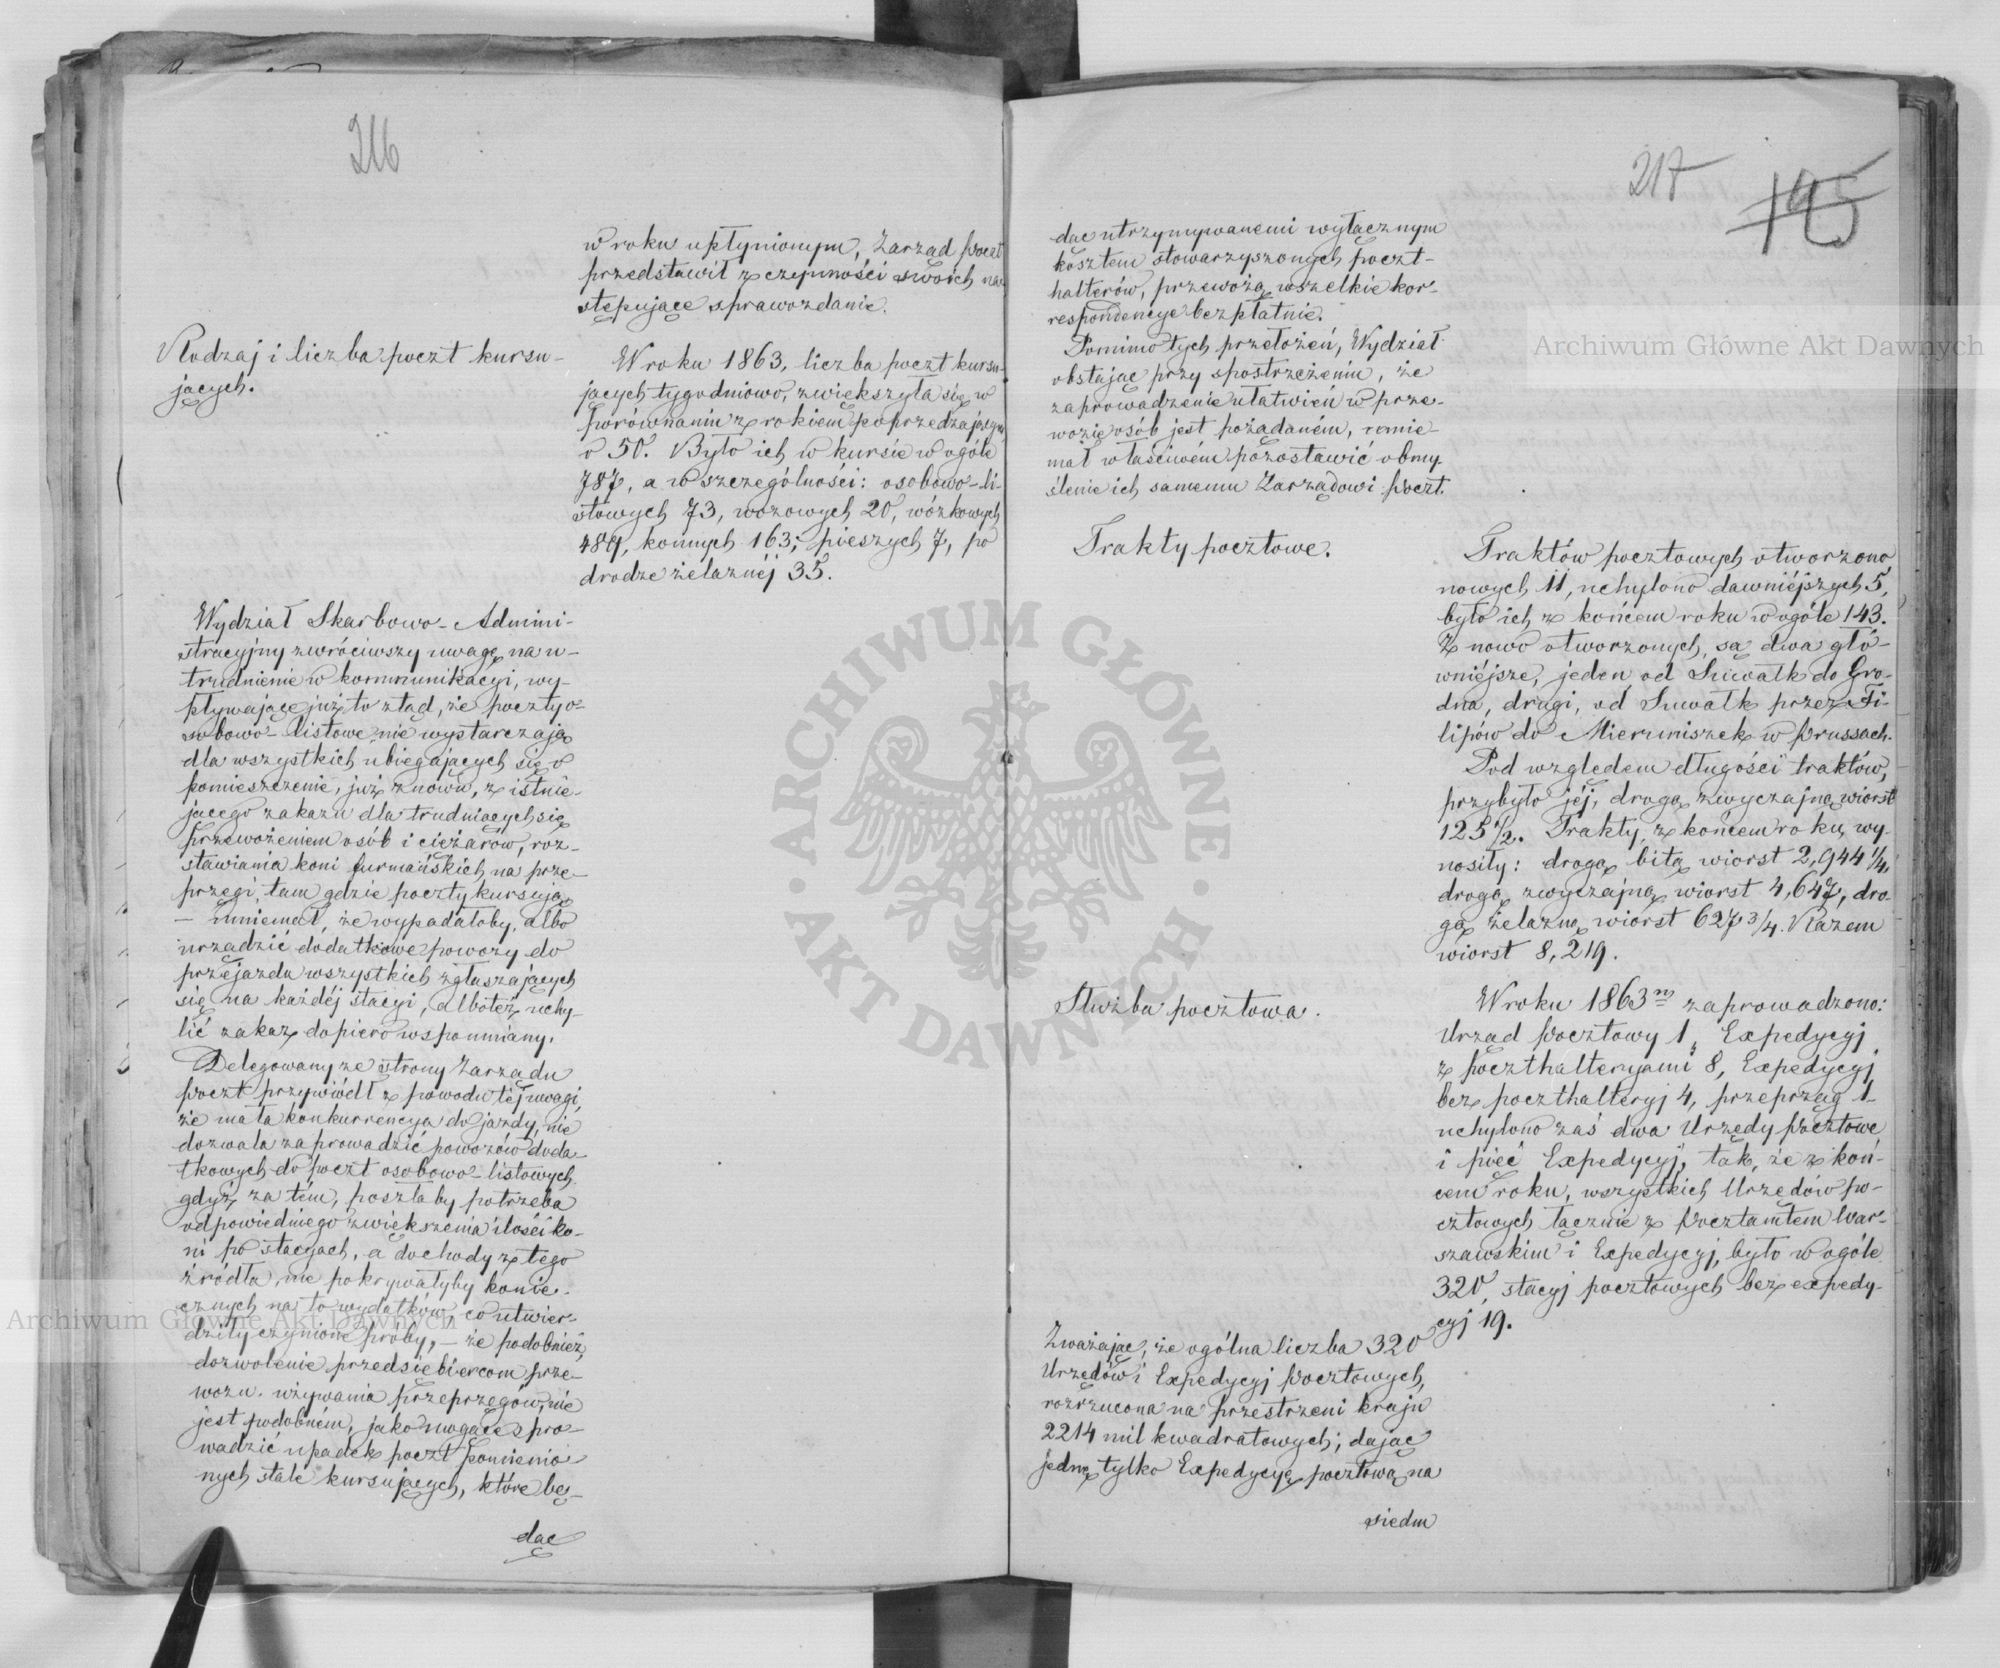 216
w roku upłynionym, Zarząd Poczt
przedstawił z czynności swoich na-
stępujące sprawozdanie.
Rodzaj i liczba poczt kursu-
jących.
W roku 1863, liczba poczt kursu-
jących tygodniowo, zwiększyła się w
porównaniu z rokiem poprzedzającym
o 50. Było ich w kursie w ogóle
787, a w szczególności: osobowo-li-
stowych 73, wozowych 20, wózkowych
489, konnych 163; pieszych 7, po
drodze żelaznéj 35.
Wydział Skarbowo-Admini-
stracyjny zwróciwszy uwagę na u-
trudnienie w kommunikacyi, wy-
pływające już to ztąd, że poczty o-
sobowo-listowe nie wystarczają
dla wszystkich ubiegających się o
pomieszczenie, już znowu, z istnie-
jącego zakazu dla trudniących się
przewożeniem osób i ciężarów, roz-
stawiania koni furmańskich na prze-
przęgi tam gdzie poczty kursują
— mniemał, że wypadałoby, albo
urządzić dodatkowe powozy do
przejazdu wszystkich zgłaszających
się na każdéj stacyi, albo też uchy-
lić zakaz dopiero wspomniany.
Delegowany ze strony Zarządu
Poczt przywiódł z powodu téj uwagi,
że mała konkurrencya do jazdy, nie
dozwala zaprowadzić powozów doda-
tkowych do poczt osobowo-listowych
gdyż za tém, poszłaby potrzeba
odpowiedniego zwiększenia ilości ko-
ni po stacyach, a dochody z tego
źródła nie pokrywałyby konie-
cznych na to wydatków, co utwier-
dziły czynione próby, — że podobnież,
dozwolenie przedsiębiercom prze-
wozu używania przeprzęgów, nie
jest podobném, jako mogące spro-
wadzić upadek poczt pomienio-
nych stale kursujących, które bę-
dąc
217
195
dąc utrzymywanemi wyłącznym
kosztem stowarzyszonych poczt-
halterów, przewożą wszelkie kor-
respondencye bezpłatnie.
Pomimo tych przełożeń, Wydział
obstając przy spostrzeżeniu, że
zaprowadzenie ułatwień w prze-
wozie osób jest pożądaném, mnie-
mał właściwém pozostawić obmy-
ślenie ich samemu Zarządowi Poczt.
Trakty pocztowe.
Traktów pocztowych otworzono
nowych 11, uchylono dawniejszych 5,
było ich z końcem roku w ogóle 143.
Z nowo otworzonych, są dwa głó-
wniejsze, jeden od Suwałk do Gro-
dna, drugi, od Suwałk przez Fi-
lipów do Mieruniszek w Prussach.
Pod względem długości traktów,
przybyło jéj, drogą zwyczajną wiorst
125 1/2. Trakty z końcem roku, wy-
nosiły: drogą bitą wiorst 2,944 1/4,
drogą zwyczajną wiorst 4,647, dro-
gą żelazną wiorst 627 3/4. Razem
wiorst 8,219.
Służba pocztowa.
W roku 1863m zaprowadzono:
Urząd Pocztowy 1, Expedycyj
z poczthalteryami 8, Expedycyj
bez poczthalteryj 4, przeprząg 1
uchylono zaś dwa Urzędy Pocztowe
i pięć Expedycyj, tak, że z koń-
cem roku, wszystkich Urzędów po-
cztowych łącznie z Pocztamtem War-
szawskim i Expedycyj, było w ogóle
320, stacyj pocztowych bez expedy-
cyj 19.
Zważając, że ogólna liczba 320
Urzędów i Expedycyj Pocztowych,
rozrzucona na przestrzeni kraju
2214 mil kwadratowych; dając
jednę tylko Expedycyę pocztową na
siedm
Archiwum Główne Akt Dawnych
Archiwum Główne Akt Dawnych
ARCHIWUM GŁÓWNE · AKT DAWNYCH ·